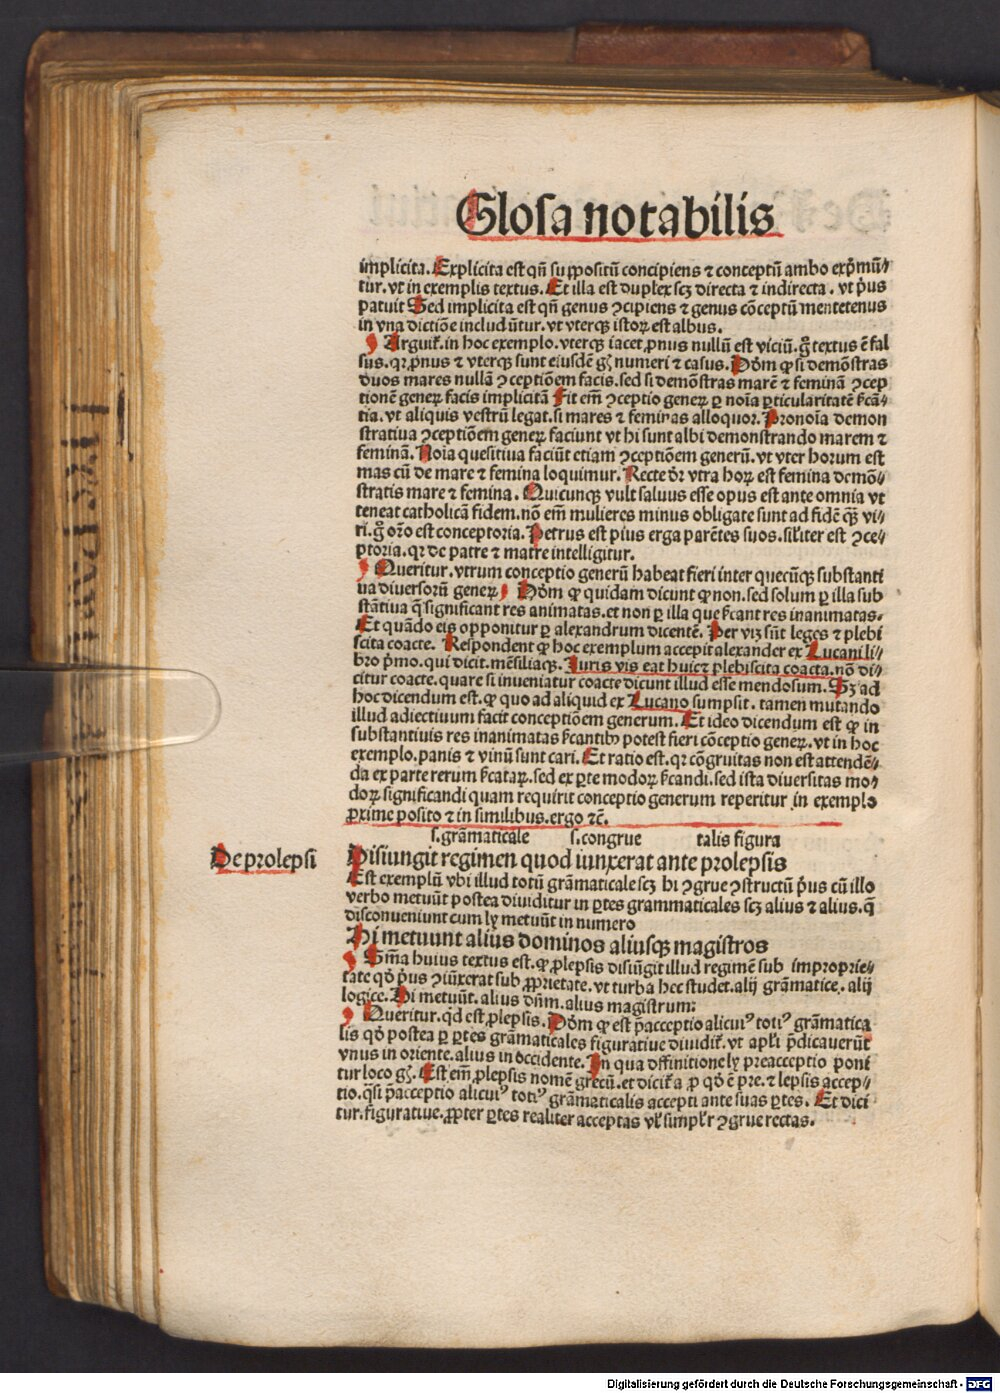 Glosa notabilis
implicita. Explicita est qñ suppositū concipiens ⁊ conceptū ambo exp̄mū⸗
tur. vt in exemplis textus. Et illa est duplex scʒ directa ⁊ indirecta. vt p̄us
patuit Sed implicita est qñ genus ꝯcipiens ⁊ genus cōceptū mentetenus
in vna dictiōe includūtur. vt vterqʒ istoꝝ est albus.
Arguit̄. in hoc exemplo. vterqʒ iacet ꝓnus nullū est viciū. g̊ textus ē fal
sus. qꝛ ꝓnus ⁊ vterqʒ sunt eiusdē gn̄ numeri ⁊ casus. Dōm ꝙ si demōstras
duos mares nullā ꝯceptiōem facis. sed si demōstras marē ⁊ feminā ꝯcep
tionē geneꝝ facis implicitā Fit em̄ ꝯceptio geneꝝ ꝑ noīa ꝑticularitatē ſcā⸗
tia. vt aliquis vestrū legat. si mares ⁊ feminas alloquor. Pronoīa demon
stratiua ꝯceptiōem geneꝝ faciunt vt hi sunt albi demonstrando marem ⁊
feminā. Noīa quesitiua faciūt etiam ꝯceptiōem generū. vt vter horum est
mas cū de mare ⁊ femina loquimur. Recte dr̄ vtra hoꝝ est femina demō⸗
stratis mare ⁊ femina. Quicunqʒ vult saluus esse opus est ante omnia vt
teneat catholicā fidem. nō em̄ mulieres minus obligate sunt ad fidē qʒ vi⸗
ri. g̊ orō est conceptoria. Petrus est pius erga parētes suos. sil̄iter est ꝯce⸗
ptoria. qꝛ de patre ⁊ matre intelligitur.
Queritur. vtrum conceptio generū habeat fieri inter quecūqʒ substanti
ua diuersorū geneꝝ Dōm ꝙ quidam dicunt ꝙ non. sed solum ꝑ illa sub
stātiua q̄ significant res animatas. et non ꝑ illa que ſcant res inanimatas.
Et quādo eis opponitur ꝑ alexandrum dicentē. Per viʒ sūt leges ⁊ plebi
scita coacte. Respondent ꝙ hoc exemplum accepit alexander ex Lucani li⸗
bro p̄mo. qui dicit. mēsiliacqʒ. Iuris vis eat huic⁊ plebiscita coacta. nō di⸗
citur coacte. quare si inueniatur coacte dicunt illud esse mendosum. Sʒ ad
hoc dicendum est. ꝙ quo ad aliquid ex Lucano sumpsit. tamen mutando
illud adiectiuum facit conceptiōem generum. Et ideo dicendum est ꝙ in
substantiuis res inanimatas ſcantibꝰ potest fieri cōceptio geneꝝ. vt in hoc
exemplo. panis ⁊ vinū sunt cari. Et ratio est. qꝛ cōgruitas non est attendē⸗
da ex parte rerum ſcataꝝ. sed ex ꝑte modoꝝ ſcandi. sed ista diuersitas mo⸗
doꝝ significandi quam requirit conceptio generum reperitur in exemplo
ꝓxime posito ⁊ in similibus. ergo ⁊c̄.
s. grāmaticale s. congrue talis figura
De prolepsi
Disiungit regimen quod iunxerat ante prolepsis
Est exemplū vbi illud totū grāmaticale scʒ hi ꝯgrue ꝯstructū p̄us cū illo
verbo metuūt postea diuiditur in ꝑtes grammaticales scʒ alius ⁊ alius. q̄
disconueniunt cum ly metuūt in numero
Hi metuunt alius dominos aliusqʒ magistros
Sm̄a huius textus est. ꝙ ꝓlepsis disiūgit illud regimē sub improprie⸗
tate qd̄ p̄us ꝯiūxerat sub ꝓprietate. vt turba hec studet. alij grāmatice. alij
logice. Hi metuūt. alius dn̄m. alius magistrum:
Queritur. qd est ꝓlepsis. Dōm ꝙ est p̄acceptio alicuiꝰ totiꝰ grāmatica
lis qd̄ postea ꝑ ꝑtes grāmaticales figuratiue diuidit̄. vt apl̄i p̄dicauerūt
vnus in oriente. alius in occidente. In qua diffinitione ly preacceptio poni
tur loco gn̄. Est em̄ ꝓlepsis nomē grecū. et dicit̄ a ꝓ qd̄ ē pre. ⁊ lepsis accep⸗
tio. q̄si p̄acceptio alicuiꝰ totiꝰ grāmaticalis accepti ante suas ꝑtes. Et dici
tur. figuratiue. ꝓpter ꝑtes realiter acceptas vl̄ simpl̄r ꝯgrue rectas.
Digitalisierung gefördert durch die Deutsche Forschungsgemeinschaft - DFG